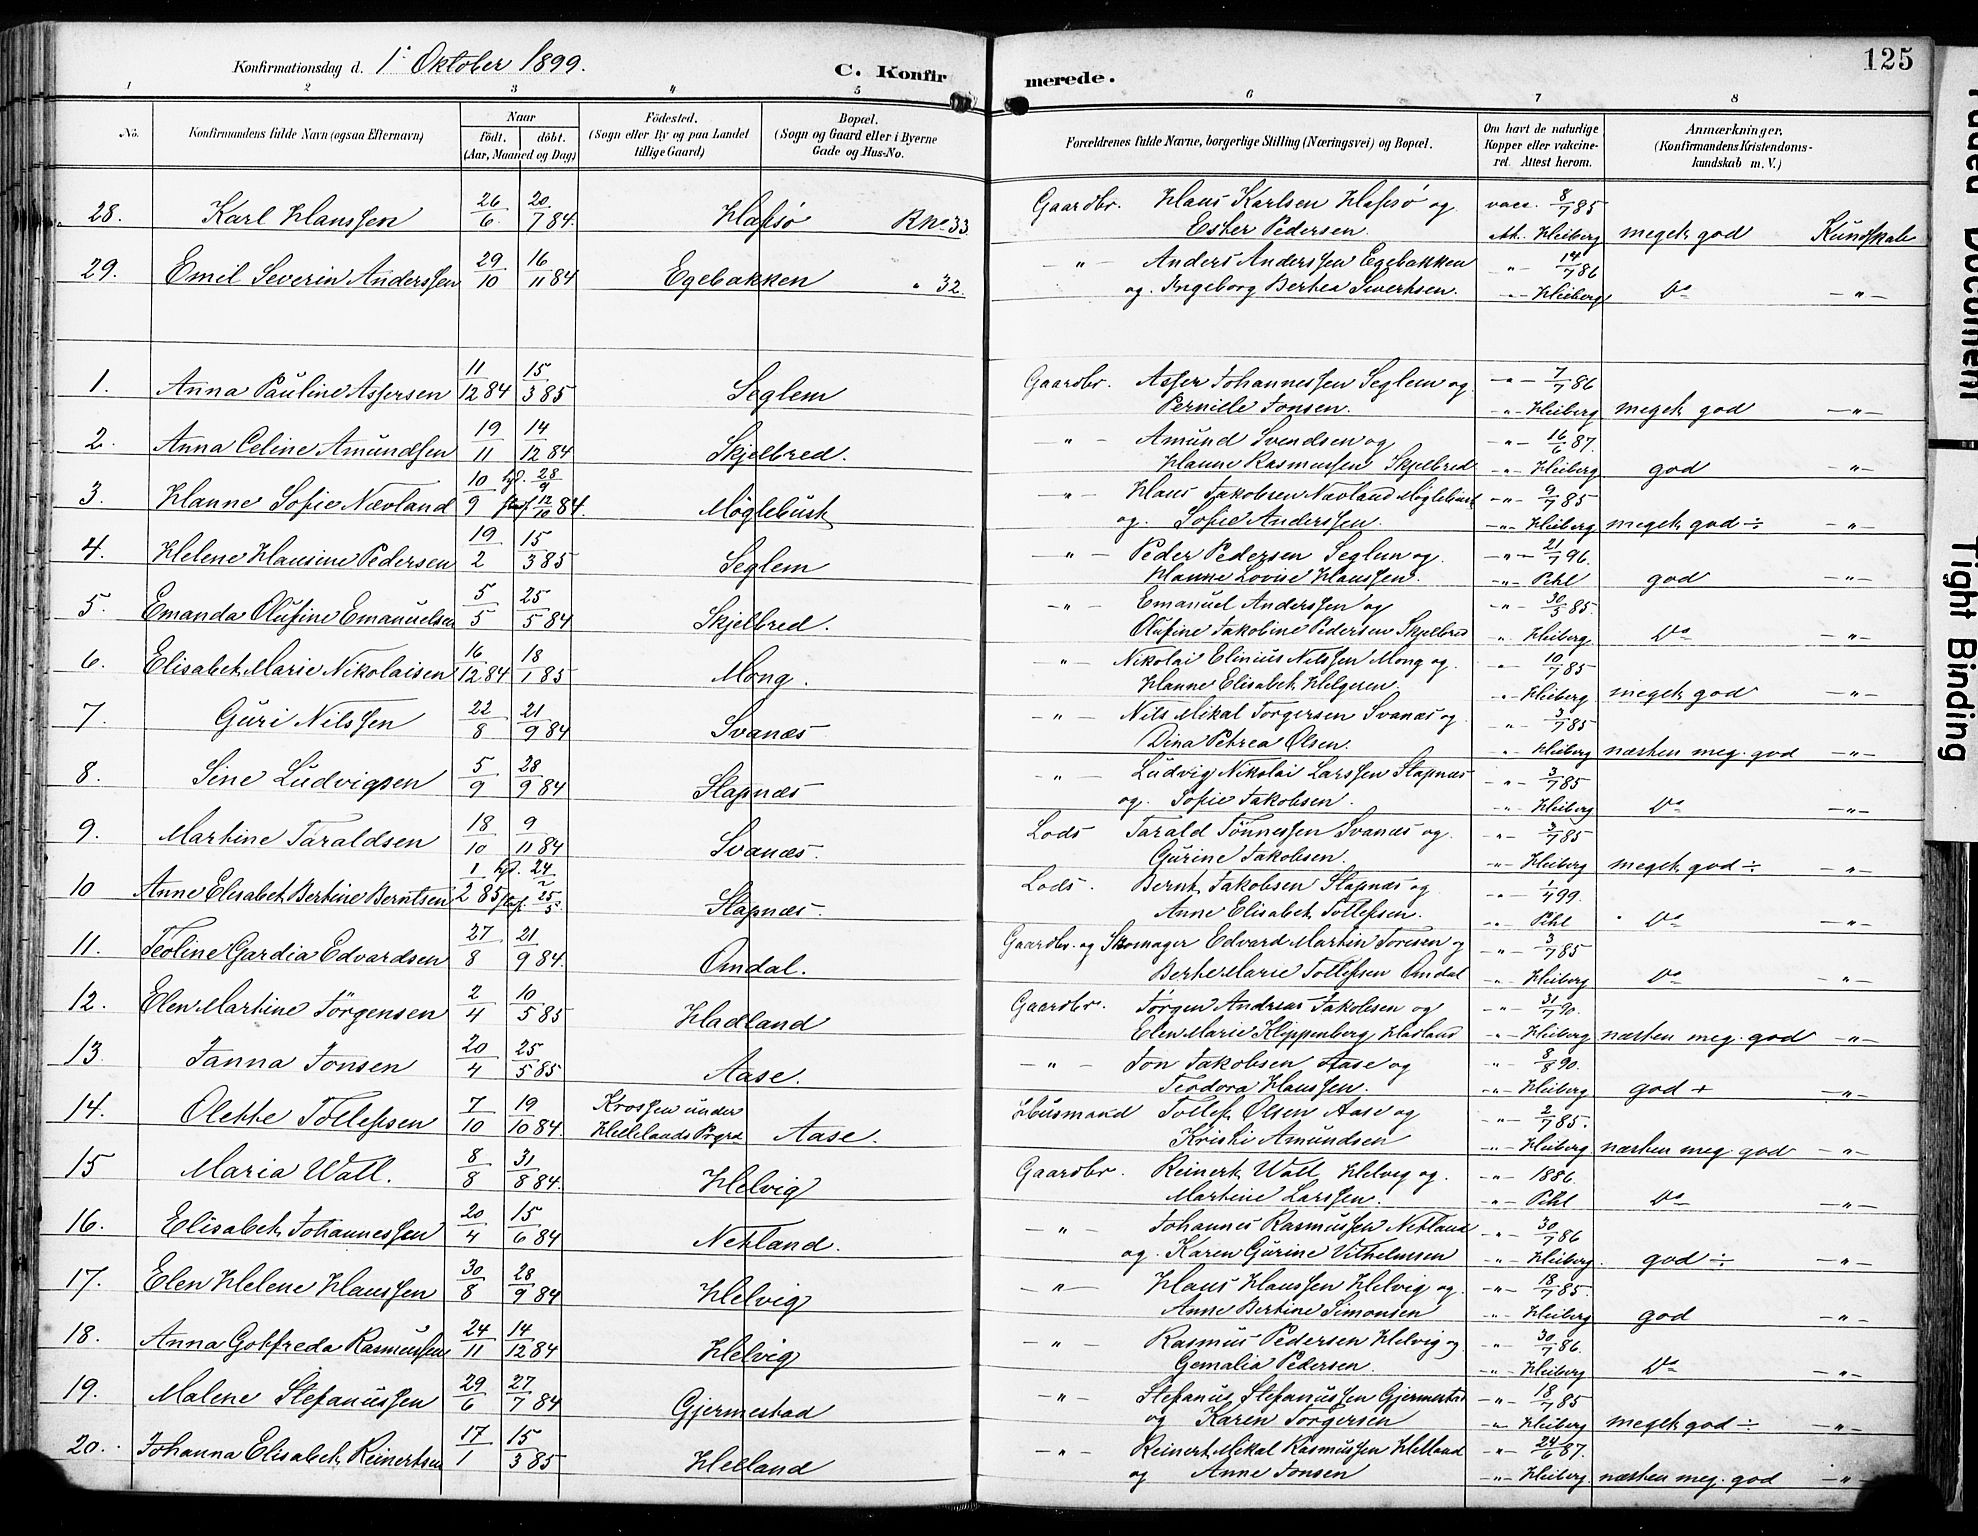 Konfirmationsdag d. 1. Oktober 1899.
C. Konfirmerede.
125
1 2 3 4 5 6 7 8
No.
Konfirmandens fulde Navn (ogsaa Efternavn)
Naar
født. døbt.
(Aar, Maaned og Dag)
Fødested.
(Sogn eller By og paa Landet tillige Gaard)
Bopæl.
(Sogn og Gaard eller i Byerne Gade og Hus-No.
Forældrenes fulde Navne, borgerlige Stilling (Næringsvei) og Bopæl.
Om havt de naturlige Kopper eller vakcineret. Attest herom.
Anmærkninger.
(Konfirmandens Kristendomskundskab m. V.)
28. Karl Hanssen 26/6 20/7 84. Hafsø R no 33 Gaardbr. Hans Karlsen Hafsø og vacc. 8/7 85
Ester Pedersen. Att. Heiberg meget god Kundskab
29. Emil Severin Anderssen 29/10 16/11 84 Egebakken " 32. — " — Anders Anderssen Egebakken - " - 14/7 86
og Ingeborg Bertea Sivertsen. - " - Heiberg Do — " —
1. Anna Pauline Assersen 11/12 84 15/3 85 Seglem Gaardbr. Asser Johannessen Seglem og - " - 7/7 86
Pernille Jonsen. - " - Heiberg meget god — " —
2. Anna Celine Amundsen 19/11 14/12 84 Skjelbred. — " — Amund Svendsen og - " - 16/6 87.
Hanne Rasmussen Skjelbred - " - Heiberg god — " —
3. Hanne Sofie Nævland 10/9 hjd. 28/9 staf. 12/10 84. Møglebust — " — Hans Jakobsen Nævland Møglebust - " - 9/7 85
og Sofie Anderssen. - " - Heiberg meget god ÷ — " —
4. Helene Hansine Pedersen 19/2 15/3 85 Seglem — " — Peder Pedersen Seglem og - " - 21/7 96.
Hanne Lovise Hanssen. - " - Pihl god — " —
5. Emanda Olufine Emanuelsen 5/5 25/5 84 Skjelbred. — " — Emanuel Anderssen og - " - 30/5 85
Olufine Jakobine Pedersen Skjelbred - " - Heiberg. Do — " —
6. Elisabet Marie Nikolaisen 16/12 84 18/1 85 Mong. — " — Nikolai Elinius Nilssen Mong og - " - 10/7 85
Hanne Elisabet Helgesen. - " - Heiberg meget god — " —
7. Guri Nilssen 22/8 21/9 84 Svanæs — " — Nils Mikal Torgersen Svanæs og - " - 3/7 85
Dina Petrea Olsen. - " - Heiberg næsten meg. god — " —
8. Sine Ludvigsen 5/9 28/9 84 Slapnæs — " — Ludvig Nikolai Larssen Slapnæs - " - 3/7 85
og Sofie Jakobsen. - " - Heiberg Do — " —
9. Martine Taraldsen 18/10 9/11 84 Svanæs. Lods Tarald Tønnessen Svanæs og - " - 3/7 85
Gurine Jakobsen. - " - Heiberg meget god ÷ — " —
10 Anne Elisabet Bertine Berntsen 1/2 85 hjd. 24/2 staf. 25/5 Slapnæs. Lods. Bernt Jakobsen Slapnæs og - " - 1/4 99.
Anne Elisabet Tollefsen. - " - Pihl Do — " —
11. Teoline Gardia Edvardsen 27/8 21/9 84. Omdal. Gaardbr. og Skomager Edvard Martin Toresen og - " - 3/7 85
Berte Marie Tollefsen Omdal - " - Heiberg Do — " —
12. Elen Martine Jörgensen 2/4 10/5 85 Hadland Gaardbr. Jørgen Andreas Jakobsen og - " - 31/7 90.
Elen Marie Klippenberg Hadland - " - Heiberg næsten meg. god — " —
13. Janna Jonsen 20/4 25/5 85 Aase. — " — Jon Jakobsen Aase og - " - 8/8 90.
Teodora Hanssen. - " - Heiberg god + — " —
14. Olette Tollefsen 7/10 19/10 84. Krossen under Hellelands Prgd Aase. Husmand Tollef Olsen Aase og - " - 2/7 85.
Kristi Amundsen - " - Heiberg næsten meg. god — " —
15 Maria Wall. 8/8 31/8 84. Helvig Gaardbr. Reinert Wall Helvig og - " - 1886.
Martine Larssen. - " - Pihl Do — " —
16. Elisabet Johannessen 20/4 15/6 84 Netland. — " — Johannes Rasmussen Netland - " - 30/7 86
og Karen Gurine Vilhelmsen - " - Heiberg. god ÷ — " —
17. Elen Helene Hanssen 30/8 28/9 84 Helvig — " — Hans Hanssen Helvig og - " - 18/7 85.
Anne Bertine Simonsen - " - Heiberg god — " —
18. Anna Gotfreda Rasmussen 24/11 14/12 84 Helvig — " — Rasmus Pedersen Helvig og - " - 30/7 86.
Gemalia Pedersen. - " - Heiberg Do — " —
19. Malene Stefanussen 29/6 27/7 84 Gjermestad — " — Stefanus Stefanussen Gjermestad - " - 18/7 85
og Karen Torgersen - " - Heiberg meget god ÷ — " —
20. Johanna Elisabet Reinertsen 17/1 15/3 85 Helland — " — Reinert Mikal Rasmussen Helland - " - 24/6 87.
og Anne Jonsen - " - Heiberg. næsten meg. god — " —
Faded Document
Tight Binding